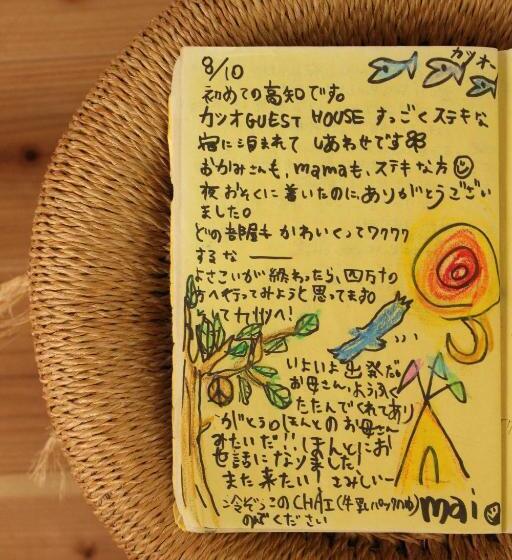 8/10
カツオ
初めての高知です。
カツオGUEST HOUSE すっごくステキな
宿に泊まれて しあわせです
おかみさんも、mamaも、ステキな方
夜おそくに着いたのに、ありがとうござい
ました。
どの部屋も かわいくってワクワク
するな ——
よさこいが終わったら、四万十の
方へ行ってみようと思ってます。
そして九州へ!
いよいよ出発だ。
お母さん、ようふく
たたんでくれてあり
がとう。ほんとのお母さん
みたいだ!! ほんとにお
世話になりました。
また来たい! さみしい—
冷ぞうこのCHAI(牛乳パックの)
のんでください
mai